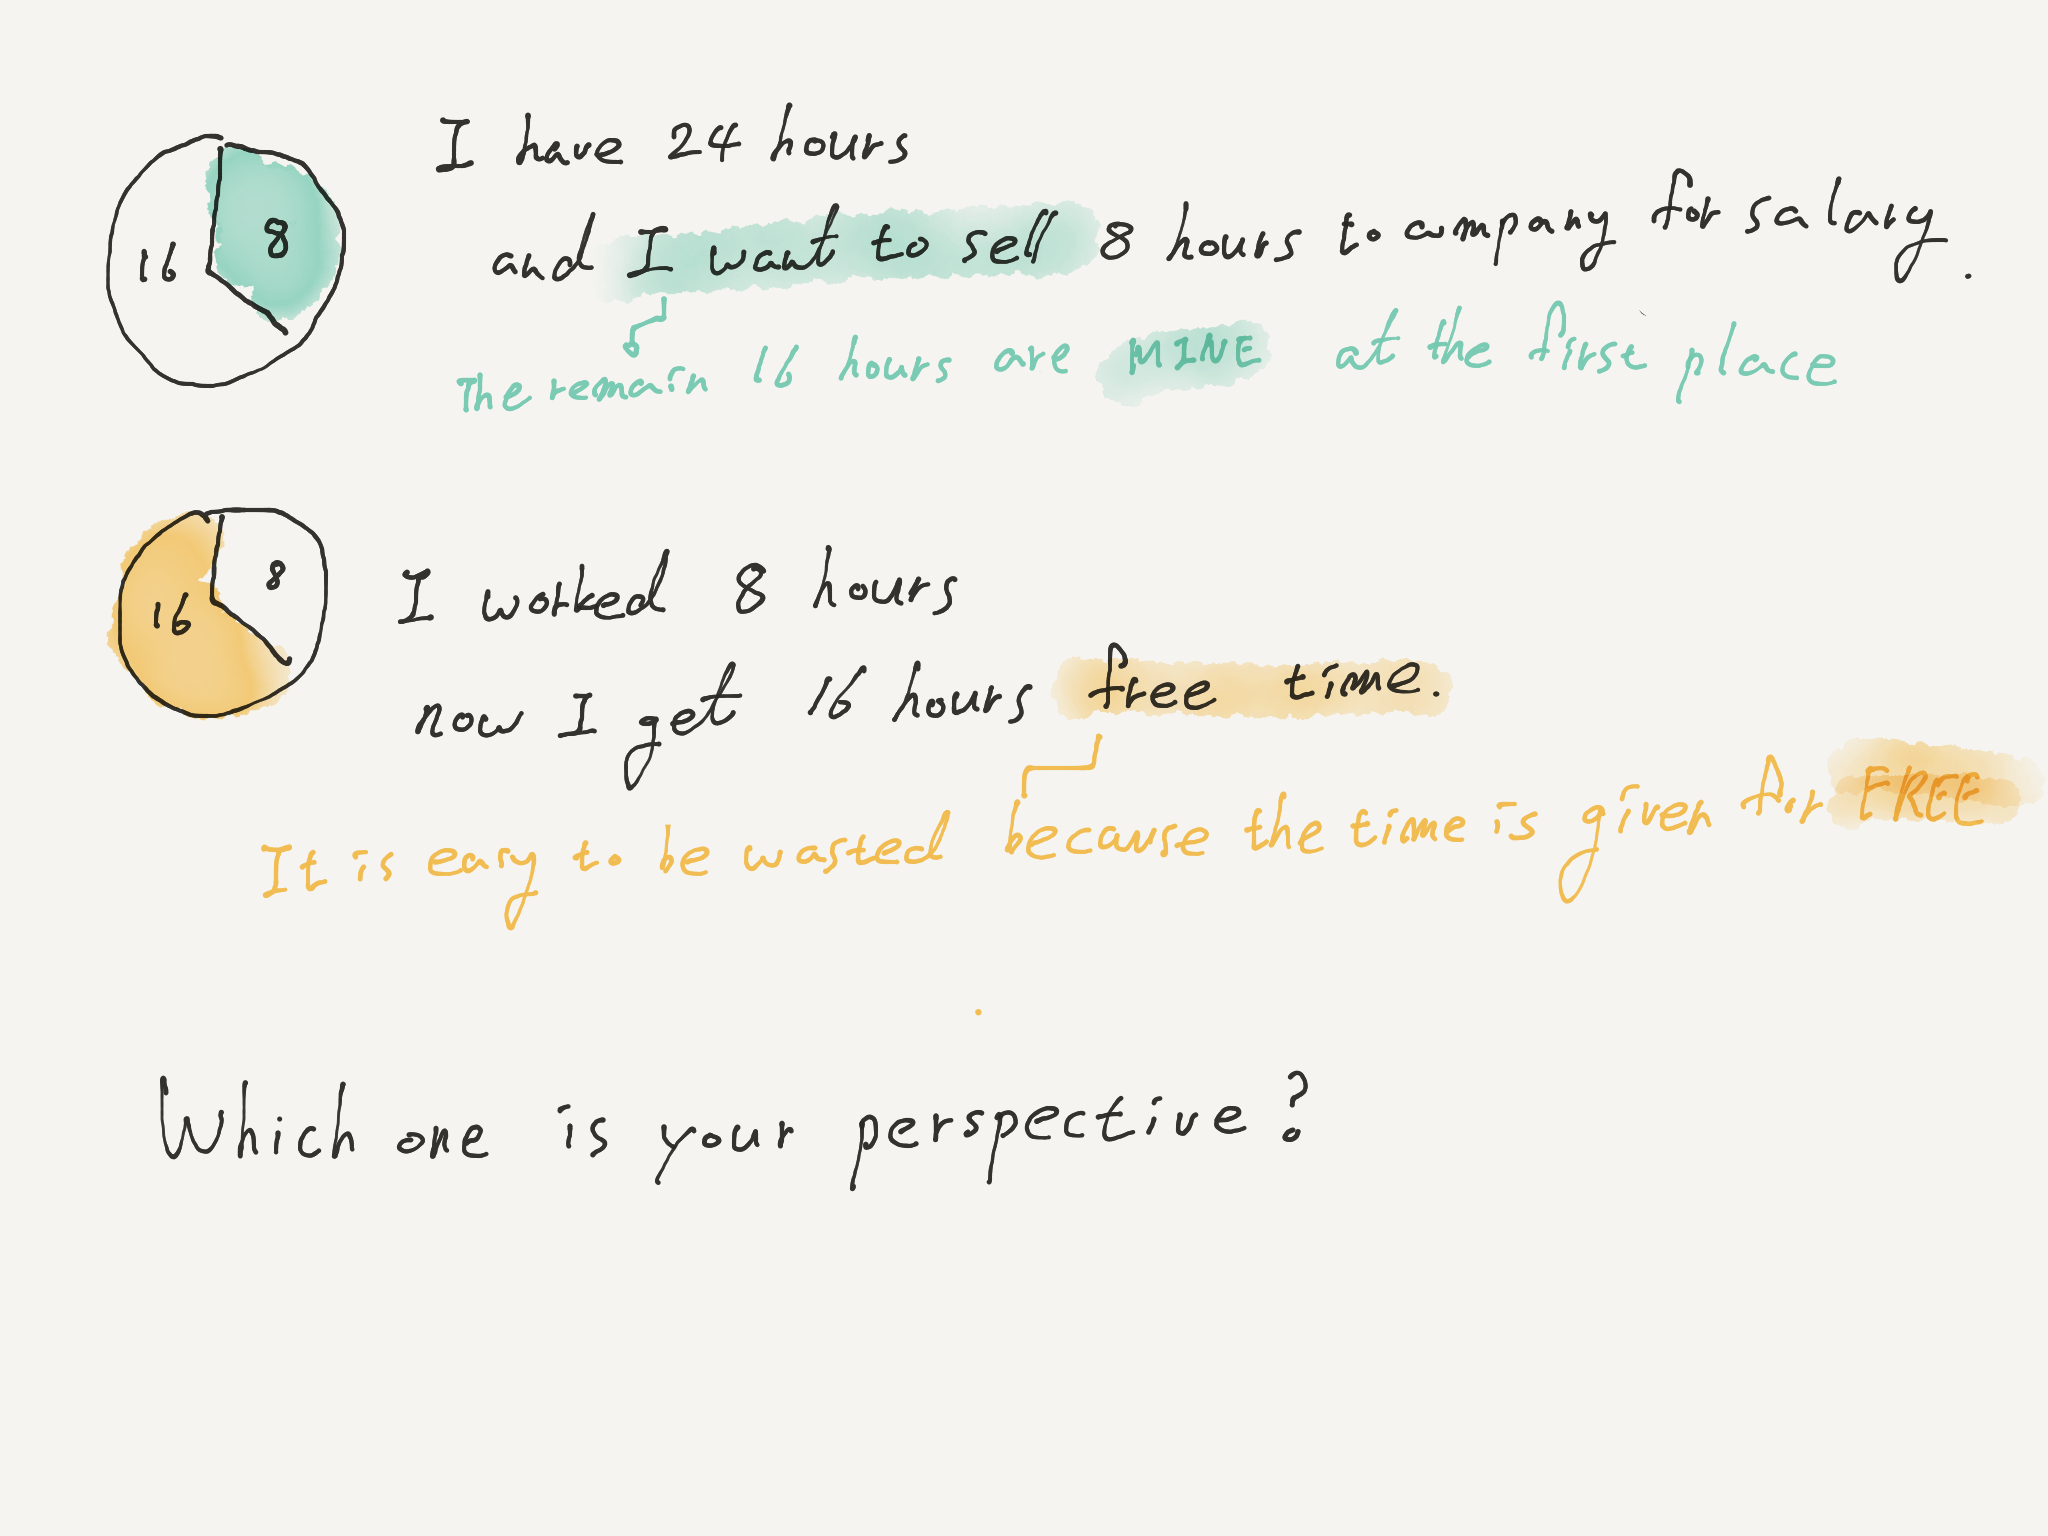 I have 24 hours
16
8
and I want to sell 8 hours to company for salary.
The remain 16 hours are MINE at the first place
I worked 8 hours
16
8
now I get 16 hours free time.
It is easy to be wasted because the time is given for FREE
Which one is your perspective?